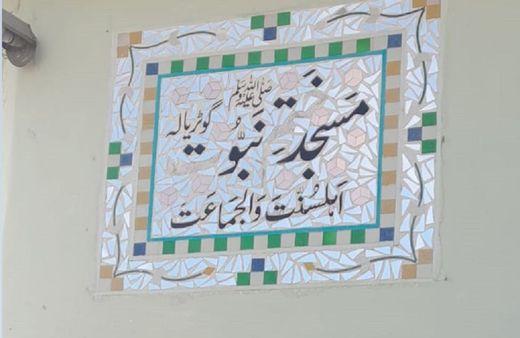 مسجدِ نبویؐ ﷺ گوڑیالہ
اہلسُنّت والجماعت